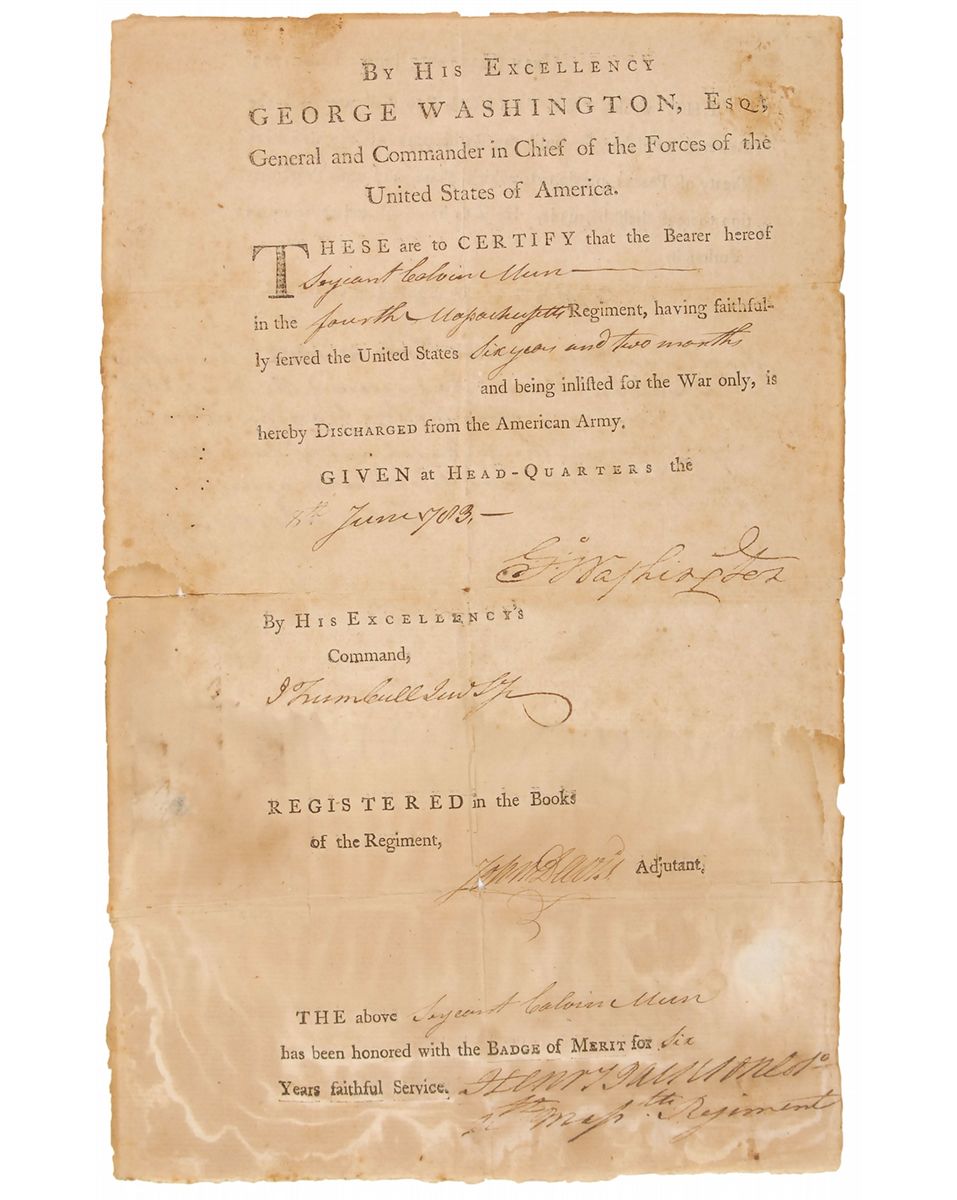 BY HIS EXCELLENCY
GEORGE WASHINGTON, ESQ;
General and Commander in Chief of the Forces of the
United States of America.
THESE are to CERTIFY that the Bearer hereof
Serjeant Calvin Mun
in the fourth Massachusetts Regiment, having faithful-
ly ſerved the United States Six years and two months
and being inliſted for the War only, is
hereby DISCHARGED from the American Army.
GIVEN at HEAD-QUARTERS the
June 1783.
Go Washington
By HIS EXCELLENCY's
Command,
J Trumbull Jun Sy
REGISTERED in the Books
of the Regiment,
John Davis Adjutant,
THE above Serjeant Calvin Mun
has been honored with the BADGE of MERIT for Six
Years faithful Service. Henry
Mass Regiment